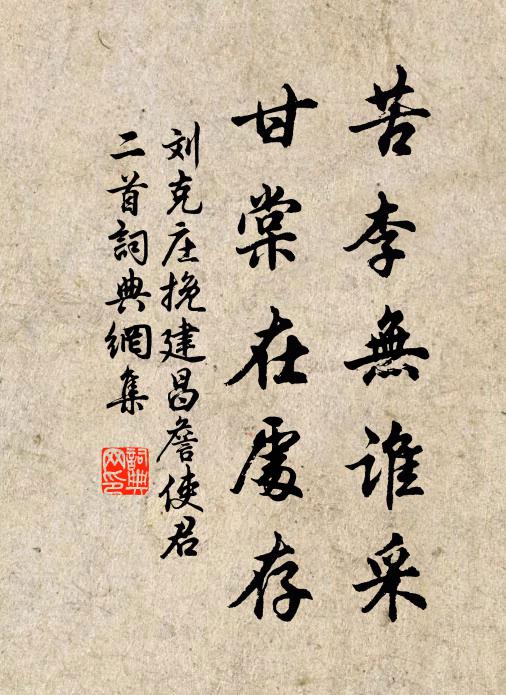 苦李無誰采
甘棠在處存
刘克庄挽建昌詹使君
二首詞典網集
詞典網印